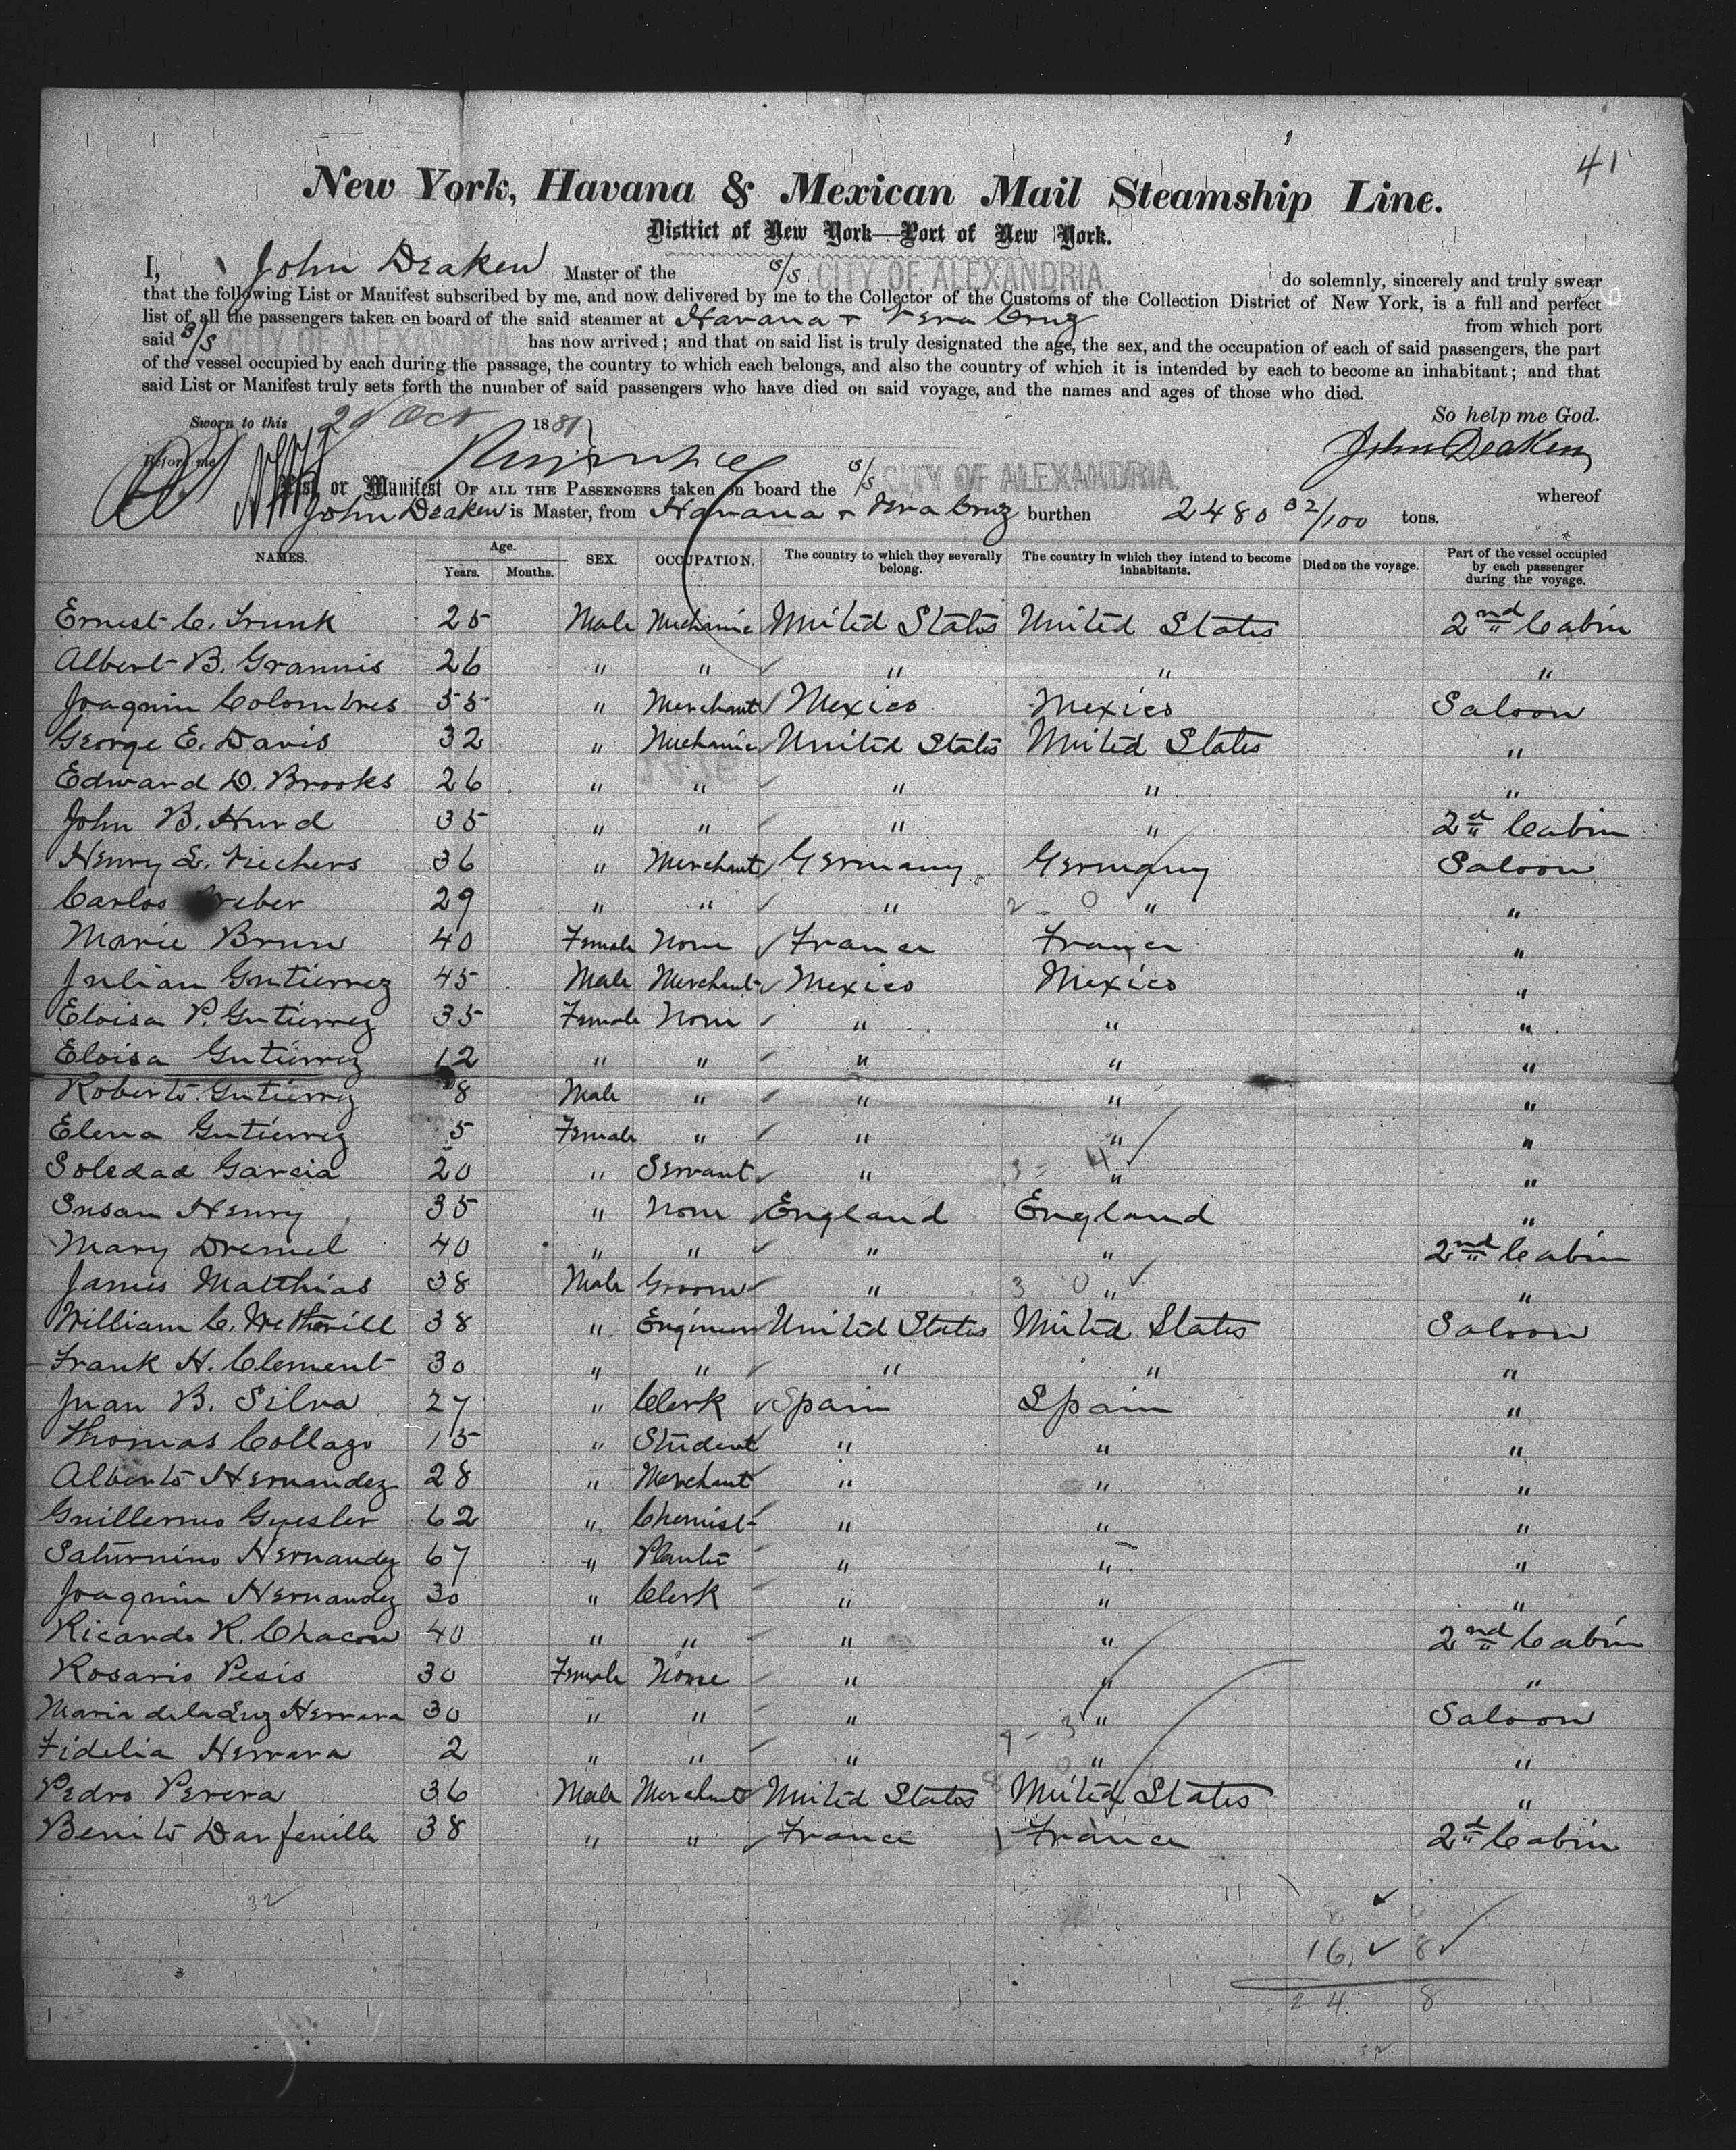 41
New York, Havana & Mexican Mail Steamship Line.
District of New York—Port of New York.
I, John Deaken Master of the S/S. CITY OF ALEXANDRIA. do solemnly, sincerely and truly swear
that the following List or Manifest subscribed by me, and now delivered by me to the Collector of the Customs of the Collection District of New York, is a full and perfect
list of all the passengers taken on board of the said steamer at Havana + Vera Cruz from which port
said S/S CITY OF ALEXANDRIA has now arrived; and that on said list is truly designated the age, the sex, and the occupation of each of said passengers, the part
of the vessel occupied by each during the passage, the country to which each belongs, and also the country of which it is intended by each to become an inhabitant; and that
said List or Manifest truly sets forth the number of said passengers who have died on said voyage, and the names and ages of those who died.
So help me God.
Sworn to this Oct 1881
John Deaken
Before me
List or Manifest OF ALL THE PASSENGERS taken on board the S/S CITY OF ALEXANDRIA. whereof
John Deaken is Master, from Havana + Vera Cruz burthen 2480 32/100 tons.
NAMES. Age. Years. Months. SEX. OCCUPATION. The country to which they severally belong. The country in which they intend to become inhabitants. Died on the voyage. Part of the vessel occupied by each passenger during the voyage.
Ernest C. Trunk 25 Male Mechanic United States United States 2nd Cabin
Albert B. Grannis 26 " " " " "
Joaquin Colombres 55 " Merchant Mexico Mexico Saloon
George E. Davis 32 " Mechanic United States United States "
Edward D. Brooks 26 " " " " "
John B. Hurd 35 " " " " 2d Cabin
Henry L. Viechers 36 " Merchant Germany Germany Saloon
Carlos 29 " " " " "
Marie Brun 40 Female None France France "
Julian Gutierrez 45 Male Merchant Mexico Mexico "
Eloisa P. Gutierrez 35 Female None " " "
Eloisa Gutierrez 12 " " " " "
Roberto Gutierrez 8 Male " " " "
Elena Gutierrez 5 Female " " " "
Soledad Garcia 20 " Servant " " "
Susan Henry 35 " None England England "
Mary Dremel 40 " " " " 2nd Cabin
James Matthias 38 Male Groom " " "
William C. Wetherill 38 " Engineer United States United States Saloon
Frank H. Clement 30 " " " " "
Juan B. Silva 27 " Clerk Spain Spain "
Thomas Collazo 15 " Student " " "
Alberto Hernandez 28 " Merchant " " "
Guillermo Gyesler 62 " Chemist " " "
Saturnino Hernandez 67 " Planter " " "
Joaquin Hernandez 30 " Clerk " " "
Ricardo R. Chacon 40 " " " " 2nd Cabin
Rosario Pesis 30 Female None " " "
Maria de la Luz Herrara 30 " " " " Saloon
Fidelia Herrara 2 " " " " "
Pedro Perera 36 Male Merchant United States United States "
Benito Darfeuille 38 " " France France 2d Cabin
32
16. 8
24. 8
32